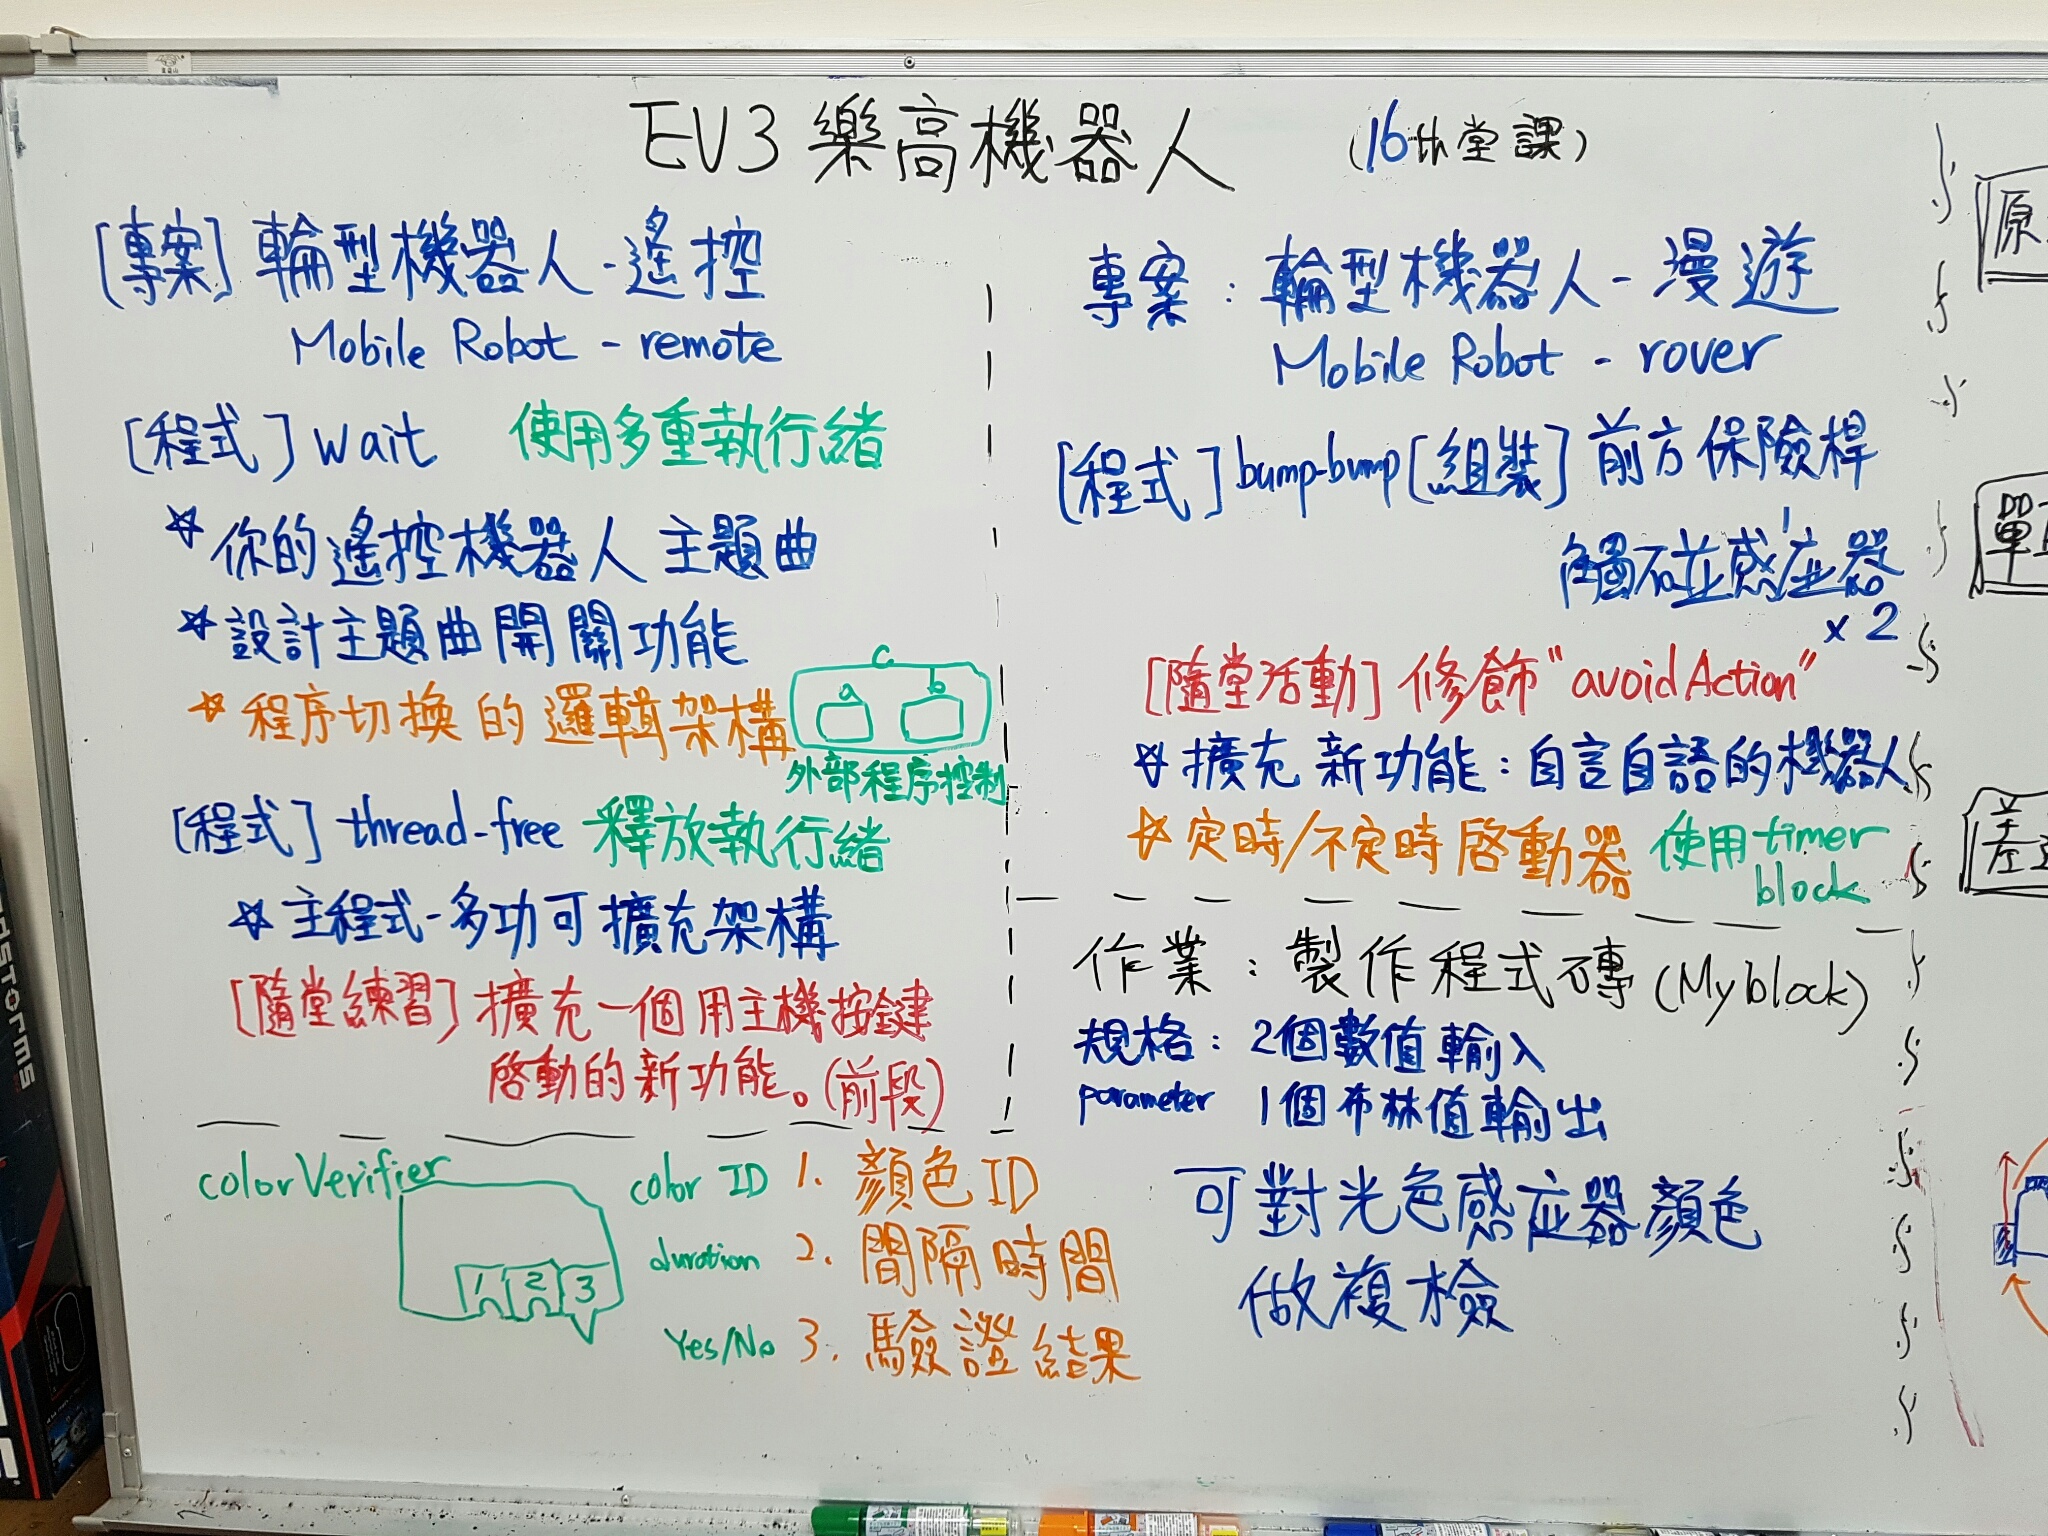 EV3 樂高機器人 (16th 堂課)
[專案] 輪型機器人 - 遙控
Mobile Robot - remote
[程式] wait 使用多重執行緒
☆ 你的遙控機器人主題曲
☆ 設計主題曲開關功能
☆ 程序切換的邏輯架構
c
a b
外部程序控制
[程式] thread-free 釋放執行緒
☆ 主程式 - 多功可擴充架構
[隨堂練習] 擴充一個用主機按鍵
啓動的新功能。(前段)
colorVerifier
1 2 3
color ID 1. 顏色 ID
duration 2. 間隔時間
Yes/No 3. 驗證結果
專案 : 輪型機器人 - 漫遊
Mobile Robot - rover
[程式] bump-bump [組裝] 前方保險桿
觸碰感應器
x 2
[隨堂活動] 修飾 "avoidAction"
☆ 擴充新功能 : 自言自語的機器人
☆ 定時/不定時啓動器 使用 timer
block
作業 : 製作程式磚 (My block)
規格 : 2個數值輸入
parameter 1個布林值輸出
可對光色感应器顏色
做複檢
原
單
差